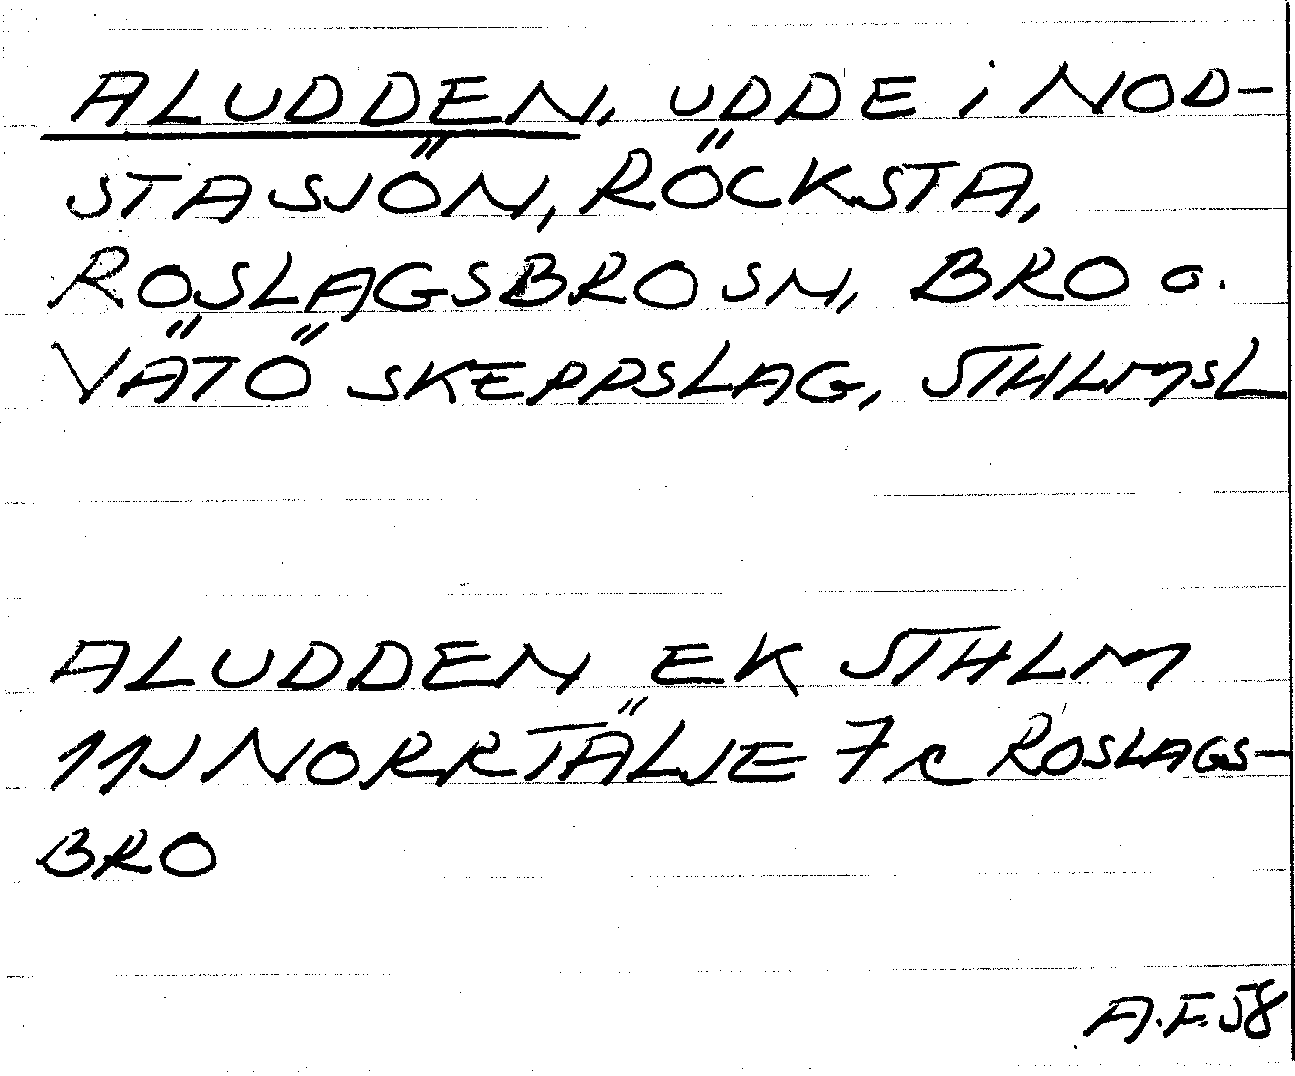 ALUDDEN, UDDE i NOD-
STASJÖN, RÖCKSTA,
ROSLAGSBROSN, BRO o.
VÄTÖ SKEPPSLAG, STHLMSL
ALUDDEN EK STHLM
11J NORRTÄLJE 7c ROSLAGS-
BRO
A.F.58